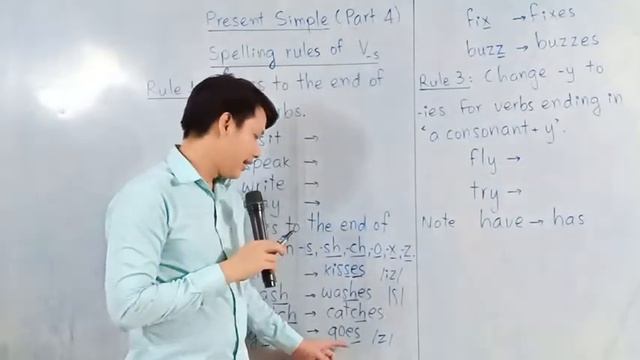 Present Simple (Part 4)
Spelling rules of V-s
Rule to the end of
bs.
sit →
speak →
write →
→
to the end of
-s, -sh, -ch, -o, -x, -z.
→ kisses /iz/
sh → washes
ch → catches
→ goes /z/
fix → fixes
buzz → buzzes
Rule 3: Change -y to
-ies for verbs ending in
'a consonant + y'.
fly →
try →
Note have → has